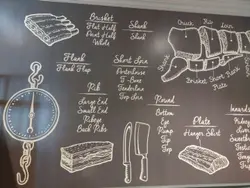 Brisket
Flat Half
Point Half
Whole
Shank
Shank
Chuck
Rib
Loin
Flank
Flank Flap
Short Loin
Porterhouse
& Bone
Tenderloin
Top Loin
Brisket
Short
Plate
Rib
Large End
Small End
Ribeye
Back Ribs
Round
Bottom
Eye
Rump
Tip
Top
Plate
Hanger Skirt
Innards
Tripe